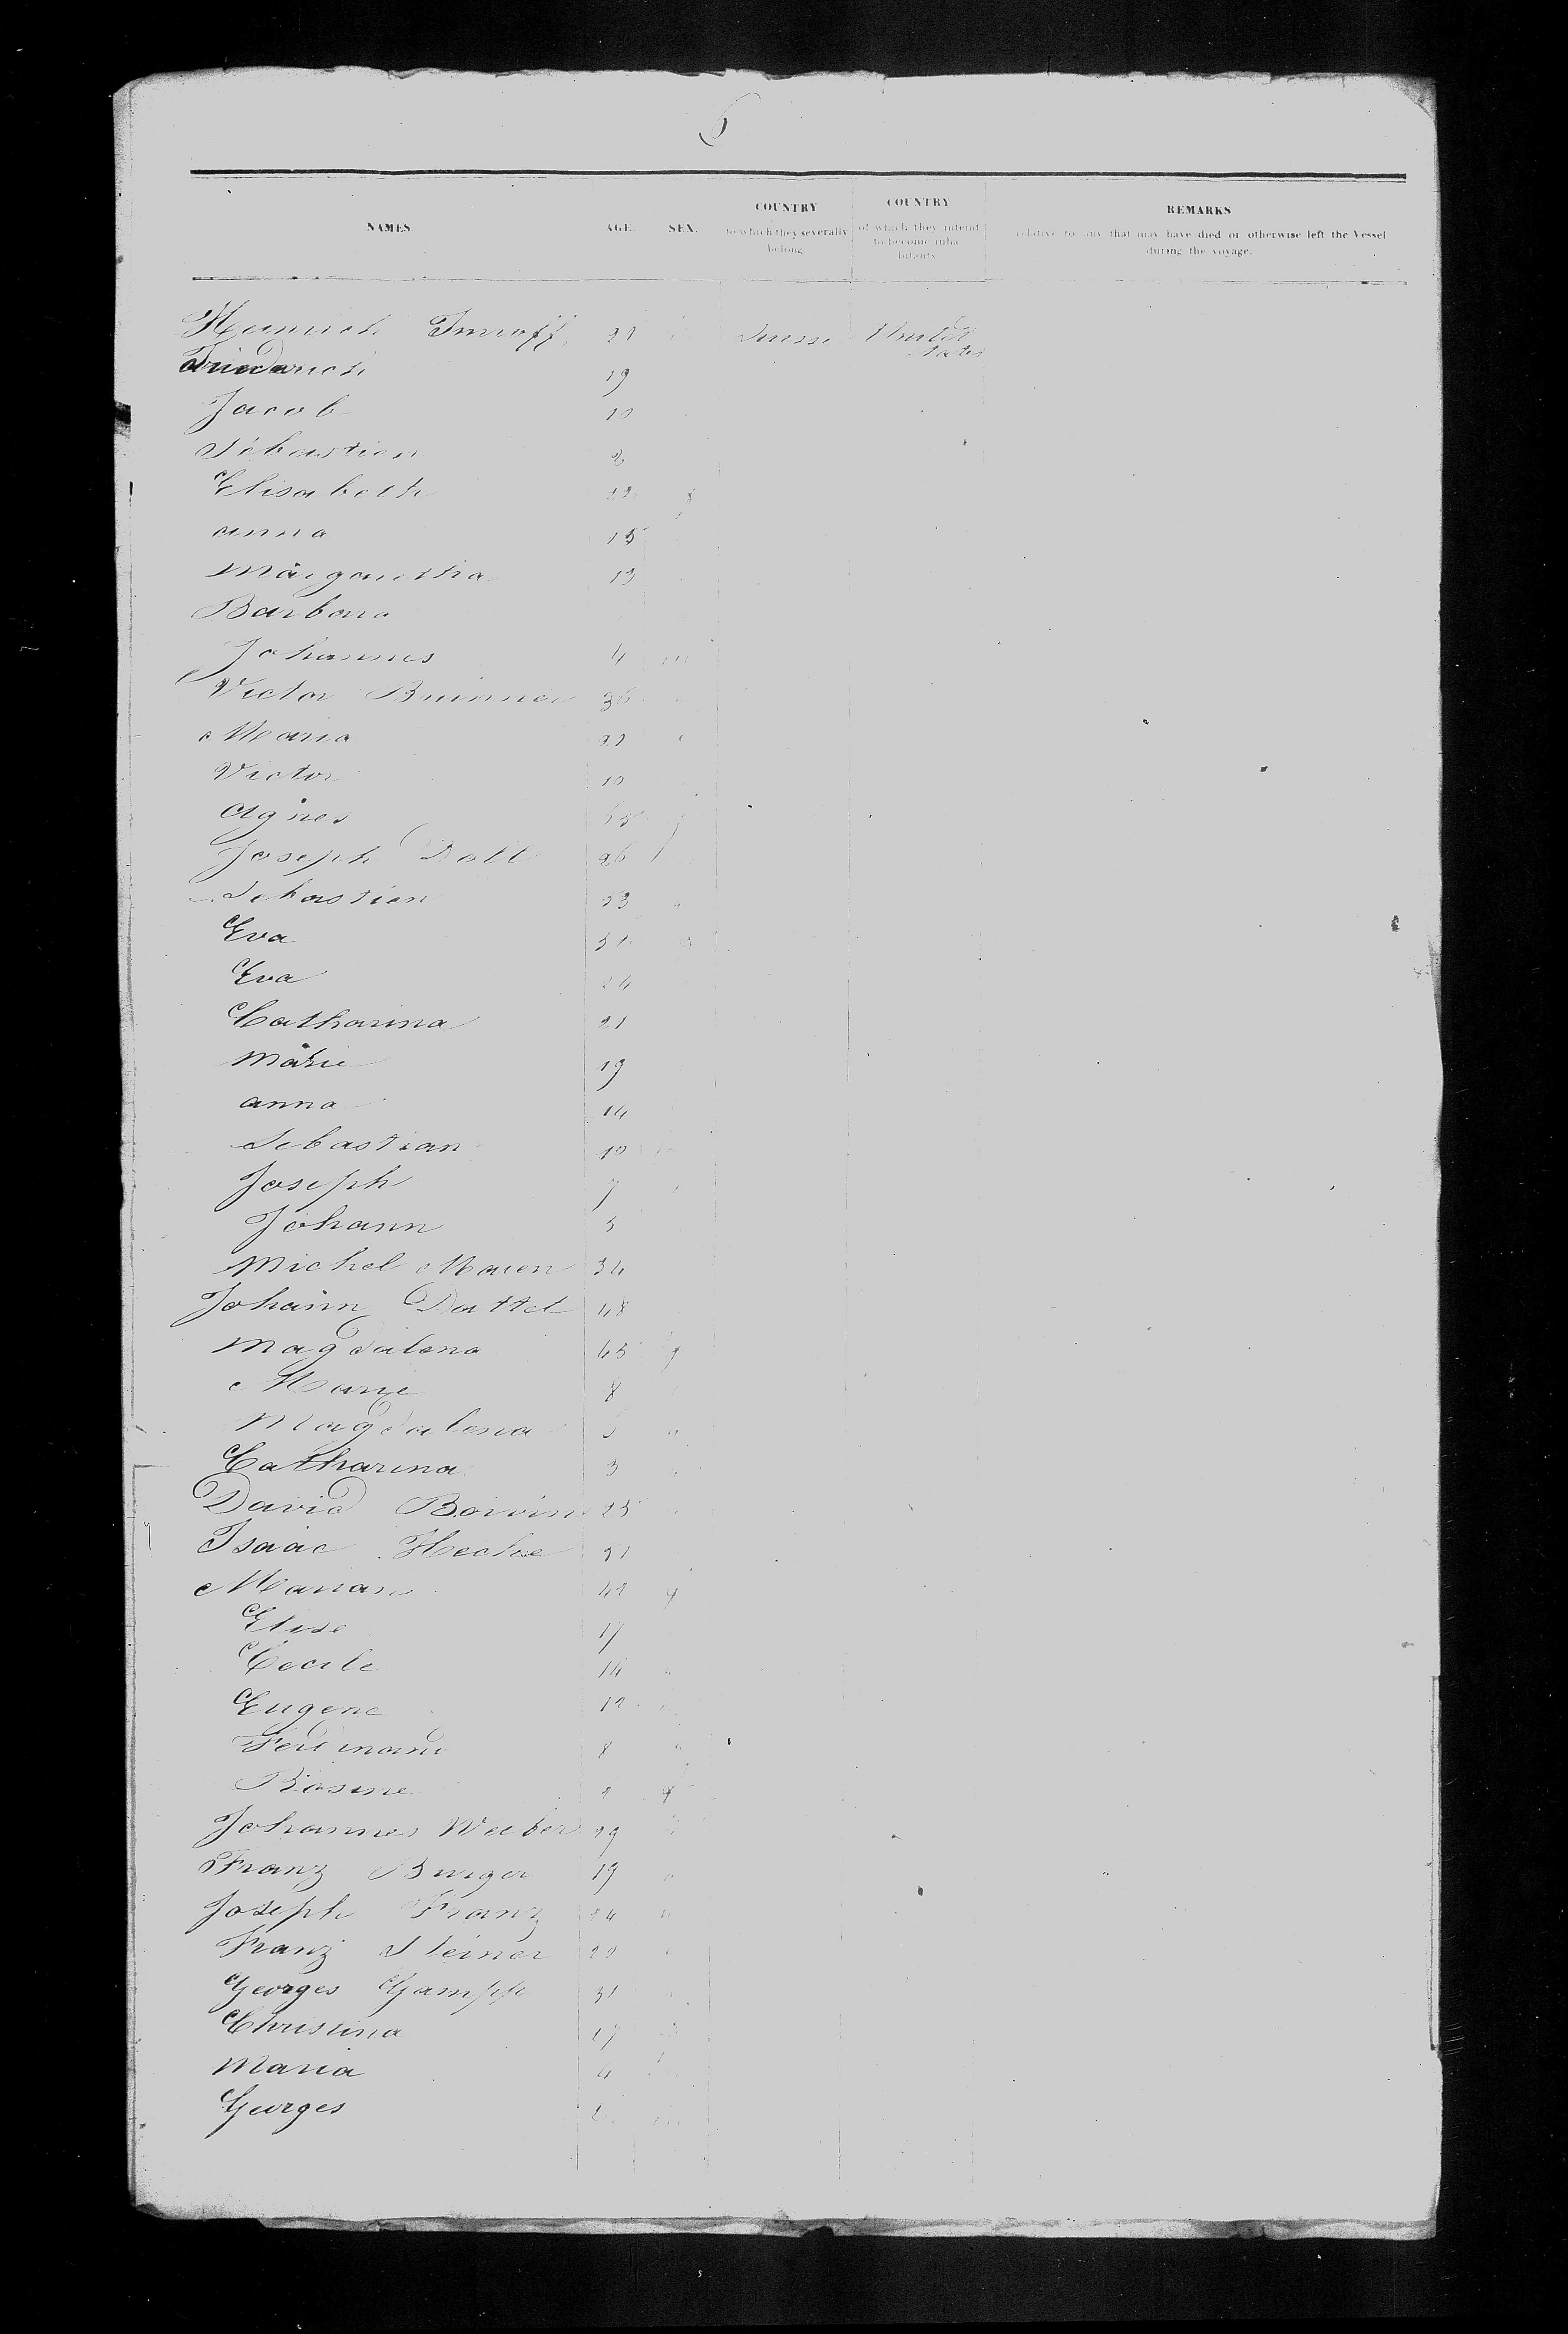 NAMES AGE. SEX. COUNTRY to which they severally belong COUNTRY of which they intend to become inhabitants REMARKS relative to any that may have died or otherwise left the Vessel during the voyage.
Heinrich Imhoff 21 Suisse United States
Friederich 19
Jacob 10
Sebastien 2
Elisabeth f
anna 15
Margaretha 13
Barbara
Johannes 4 m
Victor Brunner 36
Maria 21
Victor 10
Agnes f
Joseph Doll 26
Sebastien 53
Eva
Eva 24
Catharina 21
Marie 19
anna 14
Sebastian 10
Joseph 7
Johann 5
Michel 34
Johann Dattel 48
Magdalena 45 f
Marie 8
Magdalena
Catharina 3
David 25
Isaac 51
Marian 42 f
Elise 17
Cecile 14 "
Eugene 12
Ferdinand 8 "
Rosine f
Johannes Weber 29
Franz Burger 19
Joseph Franz 24 "
Franz Steiner 20
Georges Gampp 31
Christina 27
Maria 4
Georges m